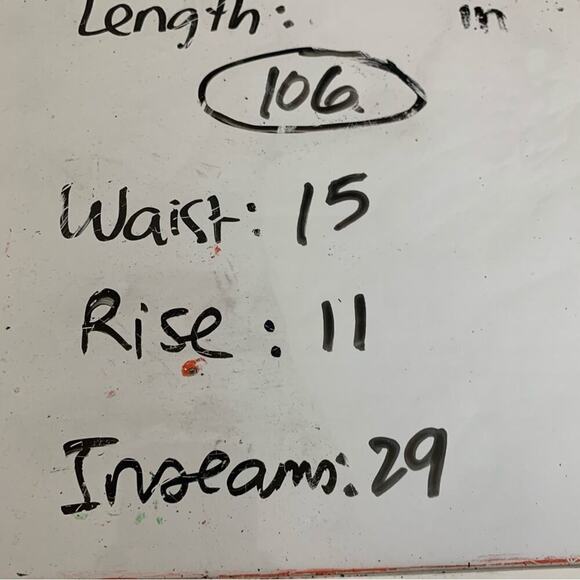 Length: in
106
Waist: 15
Rise: 11
Inseams: 29